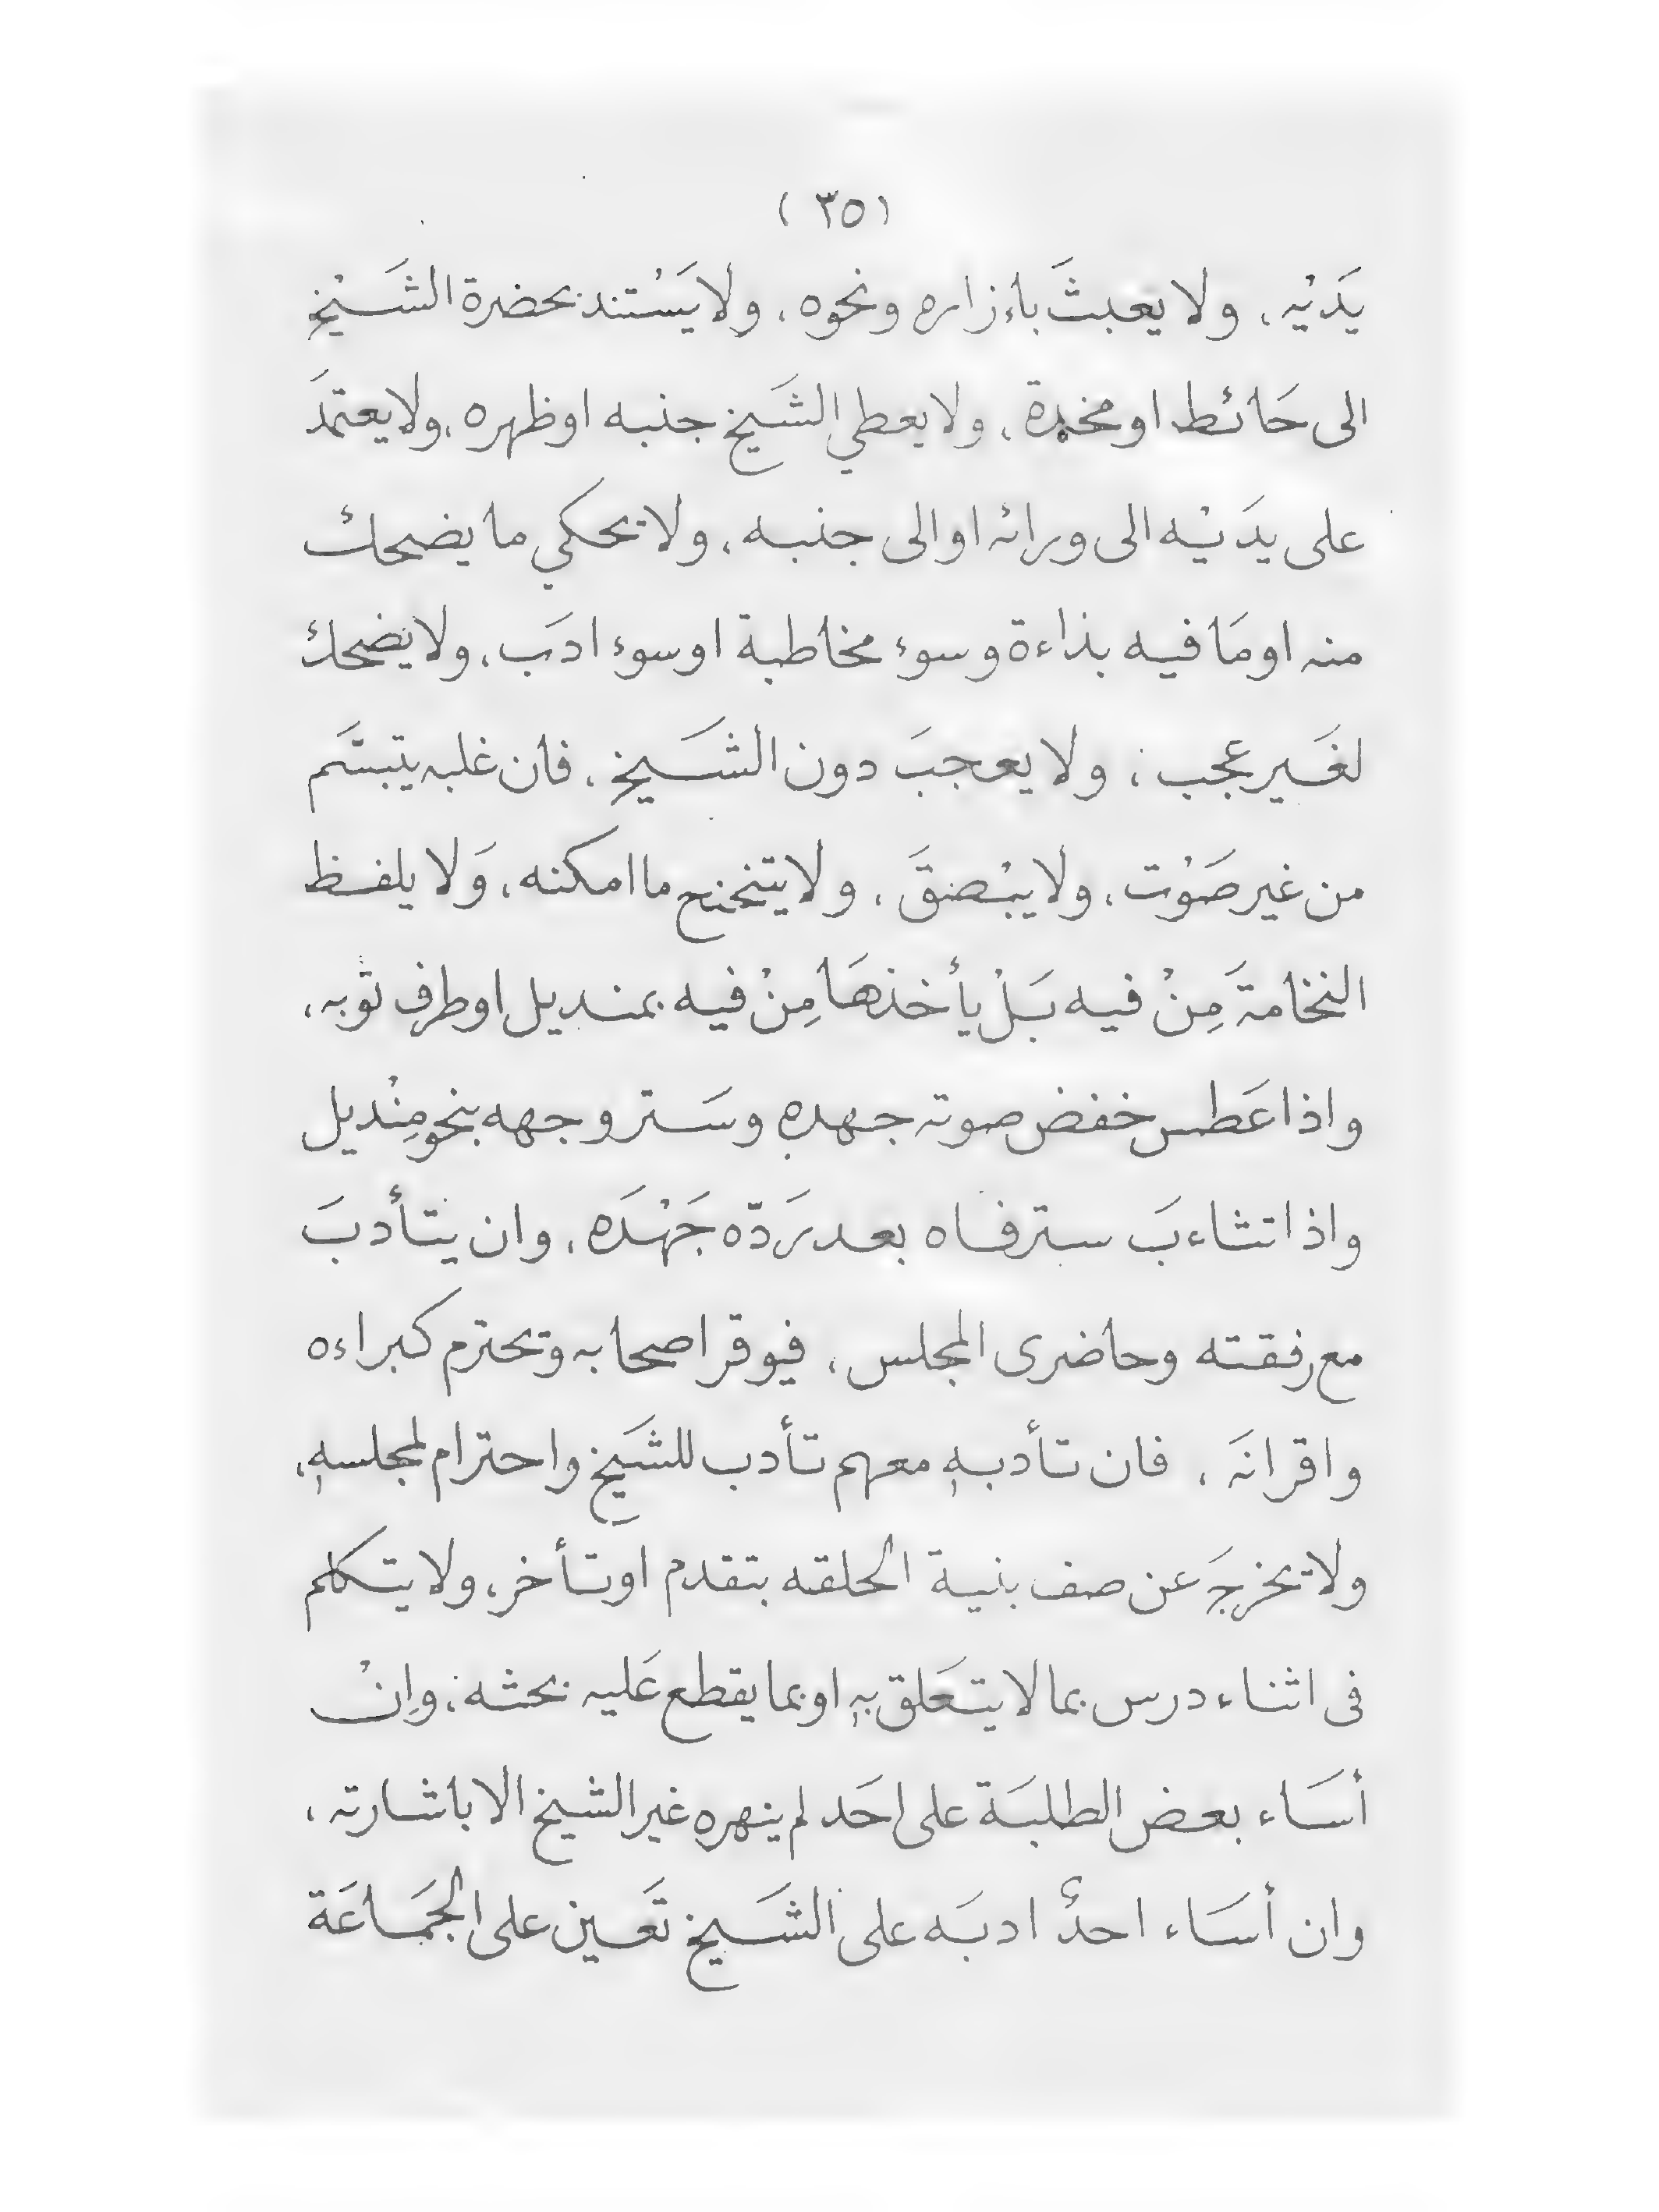 (٣٥)
يَدَيْه، ولا يعبثَ بأزراره ونحوه، ولا يَسْتند بحضرة الشَيْخ
الى حَائط او مخدة، ولا يعطي الشَيخ جنبه او ظهره، ولا يعتمدَ
على يدَيْه الى ورائه او الى جنبه، ولا يحكي ما يضحك
منه او مَا فيه بذاءة وسوء مخاطبة او سوء ادَب، ولا يضحك
لغَير عجب، ولا يعجبَ دون الشَيخ، فان غلبه يتبسَّم
من غير صَوْت، ولا يبْصقَ، ولا يتنحنح ما امكنه، وَلا يلفظ
النخامةَ مِنْ فيه بَلْ يأخذهَا مِنْ فيه بمنديل او طرف ثوبه،
واذا عَطس خفض صوته جهده وسَتر وجهه بنحو مِنْديل
واذا تثاءبَ ستر فاه بعد رَدّه جَهْدَه، وان يتأدبَ
مع رفقته وحاضرى المجلس، فيوقر اصحابه ويحترم كبراءه
واقرانَه، فان تأدبهِ معهم تأدب للشَيخ واحترام لمجلسهِ،
ولا يخرجَ عن صف بنية الحلقه بتقدم او تأخر، ولا يتكلم
فى اثناء درس بما لا يتعَلق بهِ او بما يقطع عَليه بحثه، وإنْ
أسَاء بعض الطلبَة على احَد لم ينهره غير الشيخ الا باشارته،
وان أسَاء احدٌ ادبَه على الشَيخ تَعين على الجمَاعَة